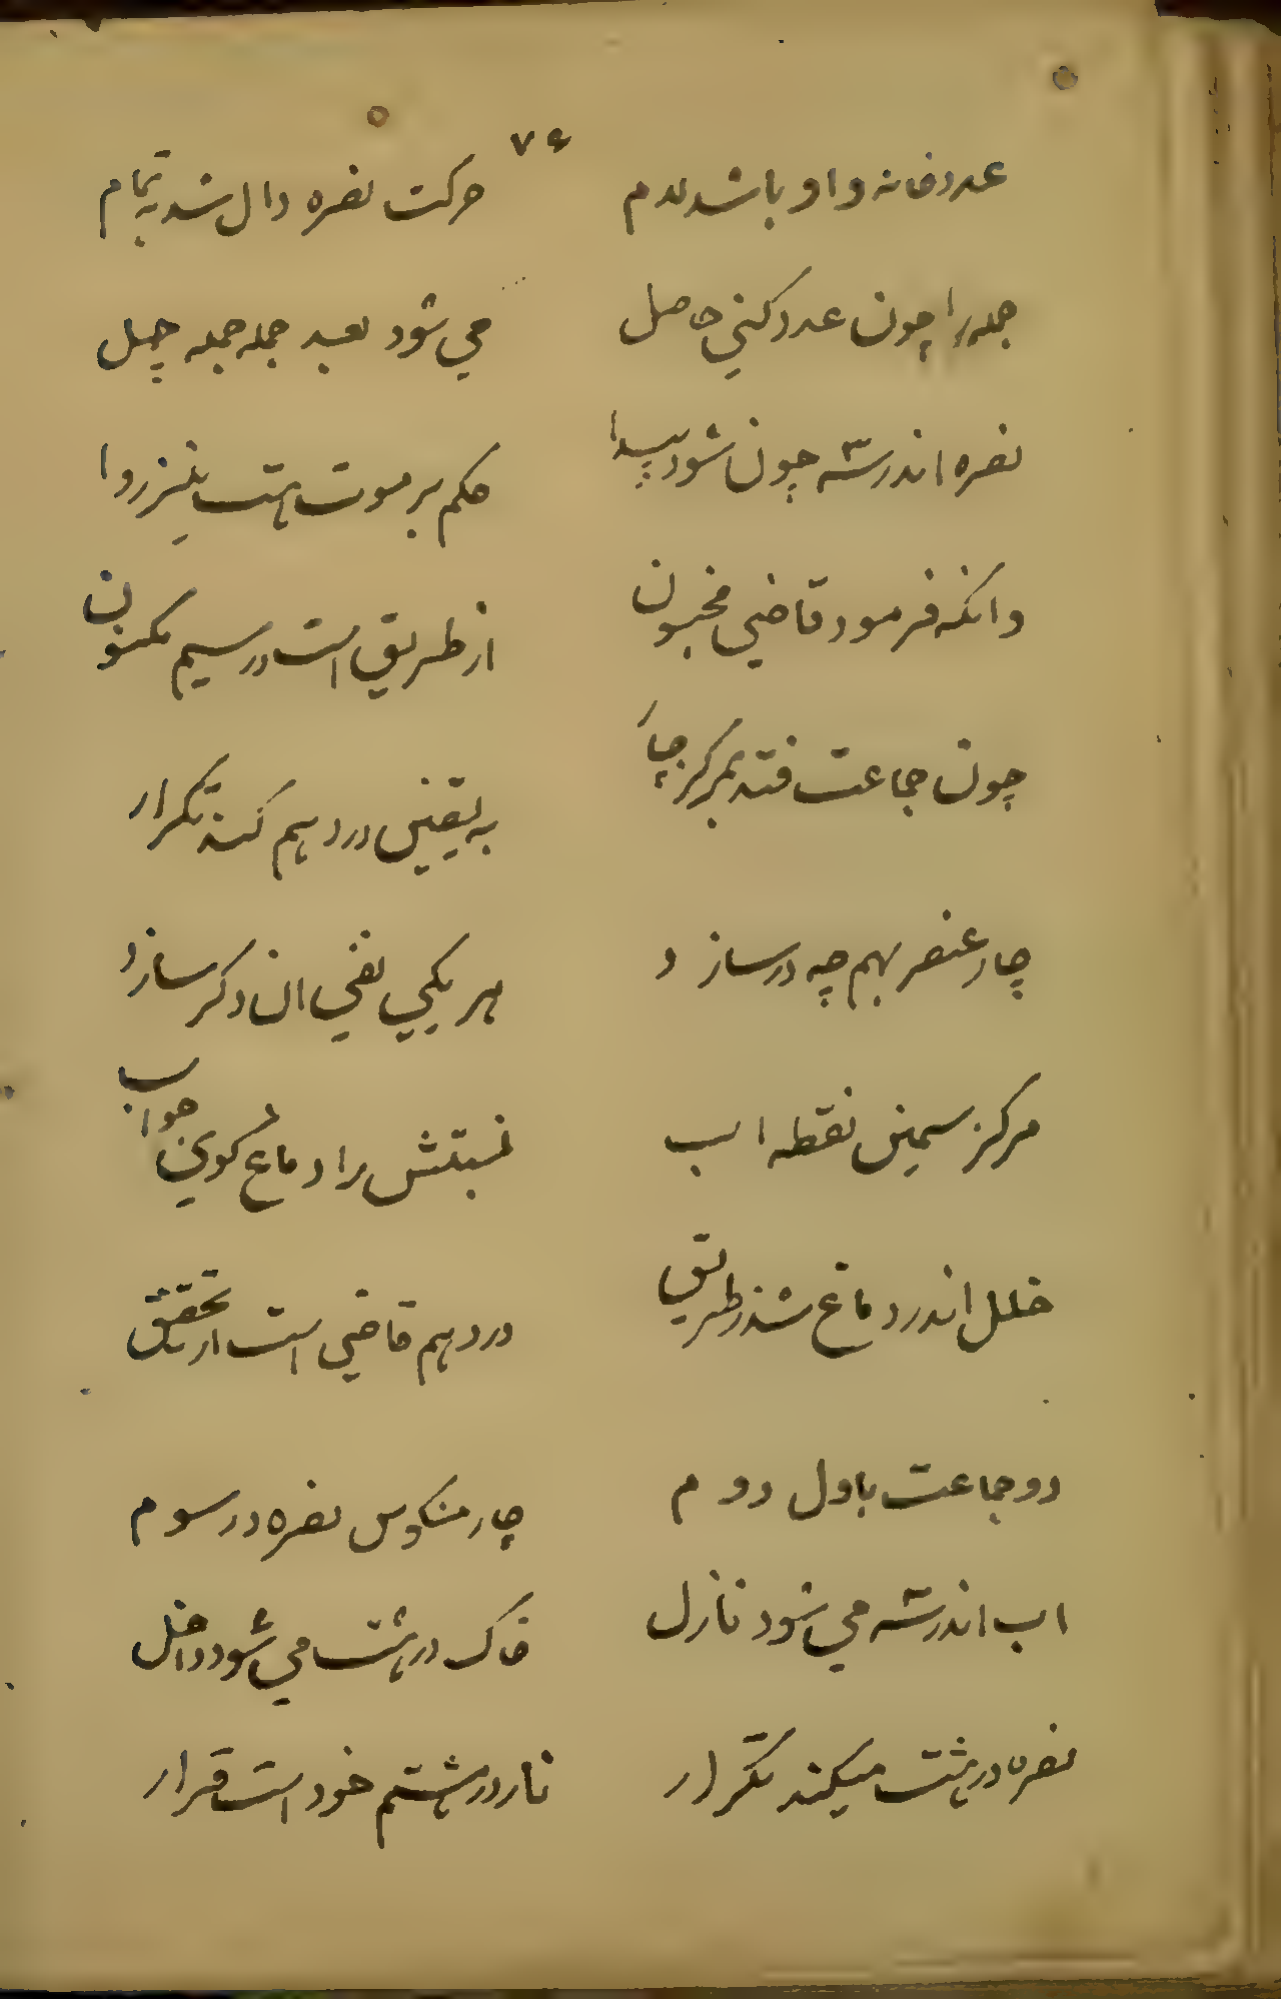 ۷۶
عدد خانه واو باشد لام
حرکت نصره دال شد به تمام
جمله را چون عدد کنی حاصل
می شود بعد جمله جمله چهل
نصره اندر سه چون شود پیدا
حکم بر موت هست نیز روا
وانکه فرمود قاضی مخبون
از طریق است در سیم مکنون
چون جماعت فتد بمرکز چار
به یقین در دهم کند تکرار
چار عنصر بهم چه در سازد
هر یکی نفی ان دکر سازد
مرکز سیمین نقطه اب
نسبتش را دماغ کوی جواب
خلل اندر دماغ شد ز طریق
در دهم قاضی است از تحقیق
دو جماعت باول دوم
چار منکوس نصره در سوم
اب اندر سه می شود نازل
خاک در هشت می شود داخل
نصره در هشت میکند تکرار
نار در هشتم خود است قرار